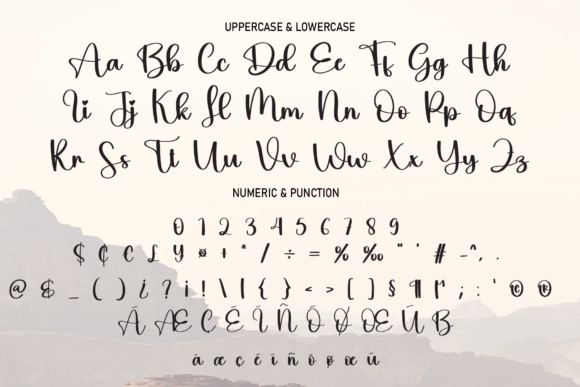 UPPERCASE & LOWERCASE
Aa Bb Cc Dd Ee Ff Gg Hh
Ii Jj Kk Ll Mm Nn Oo Pp Qq
Rr Ss Tt Uu Vv Ww Xx Yy Zz
NUMERIC & PUNCTION
0 1 2 3 4 5 6 7 8 9
$ ¢ C £ ¥ ¤ + * / ÷ = % ‰ " ' # - ^ , .
@ & _ ( ) ¿ ? ¡ ! \ | { } < > [ ] § ¶ ; : '
Æ Ñ Ø Œ
æ ç ñ ø œ